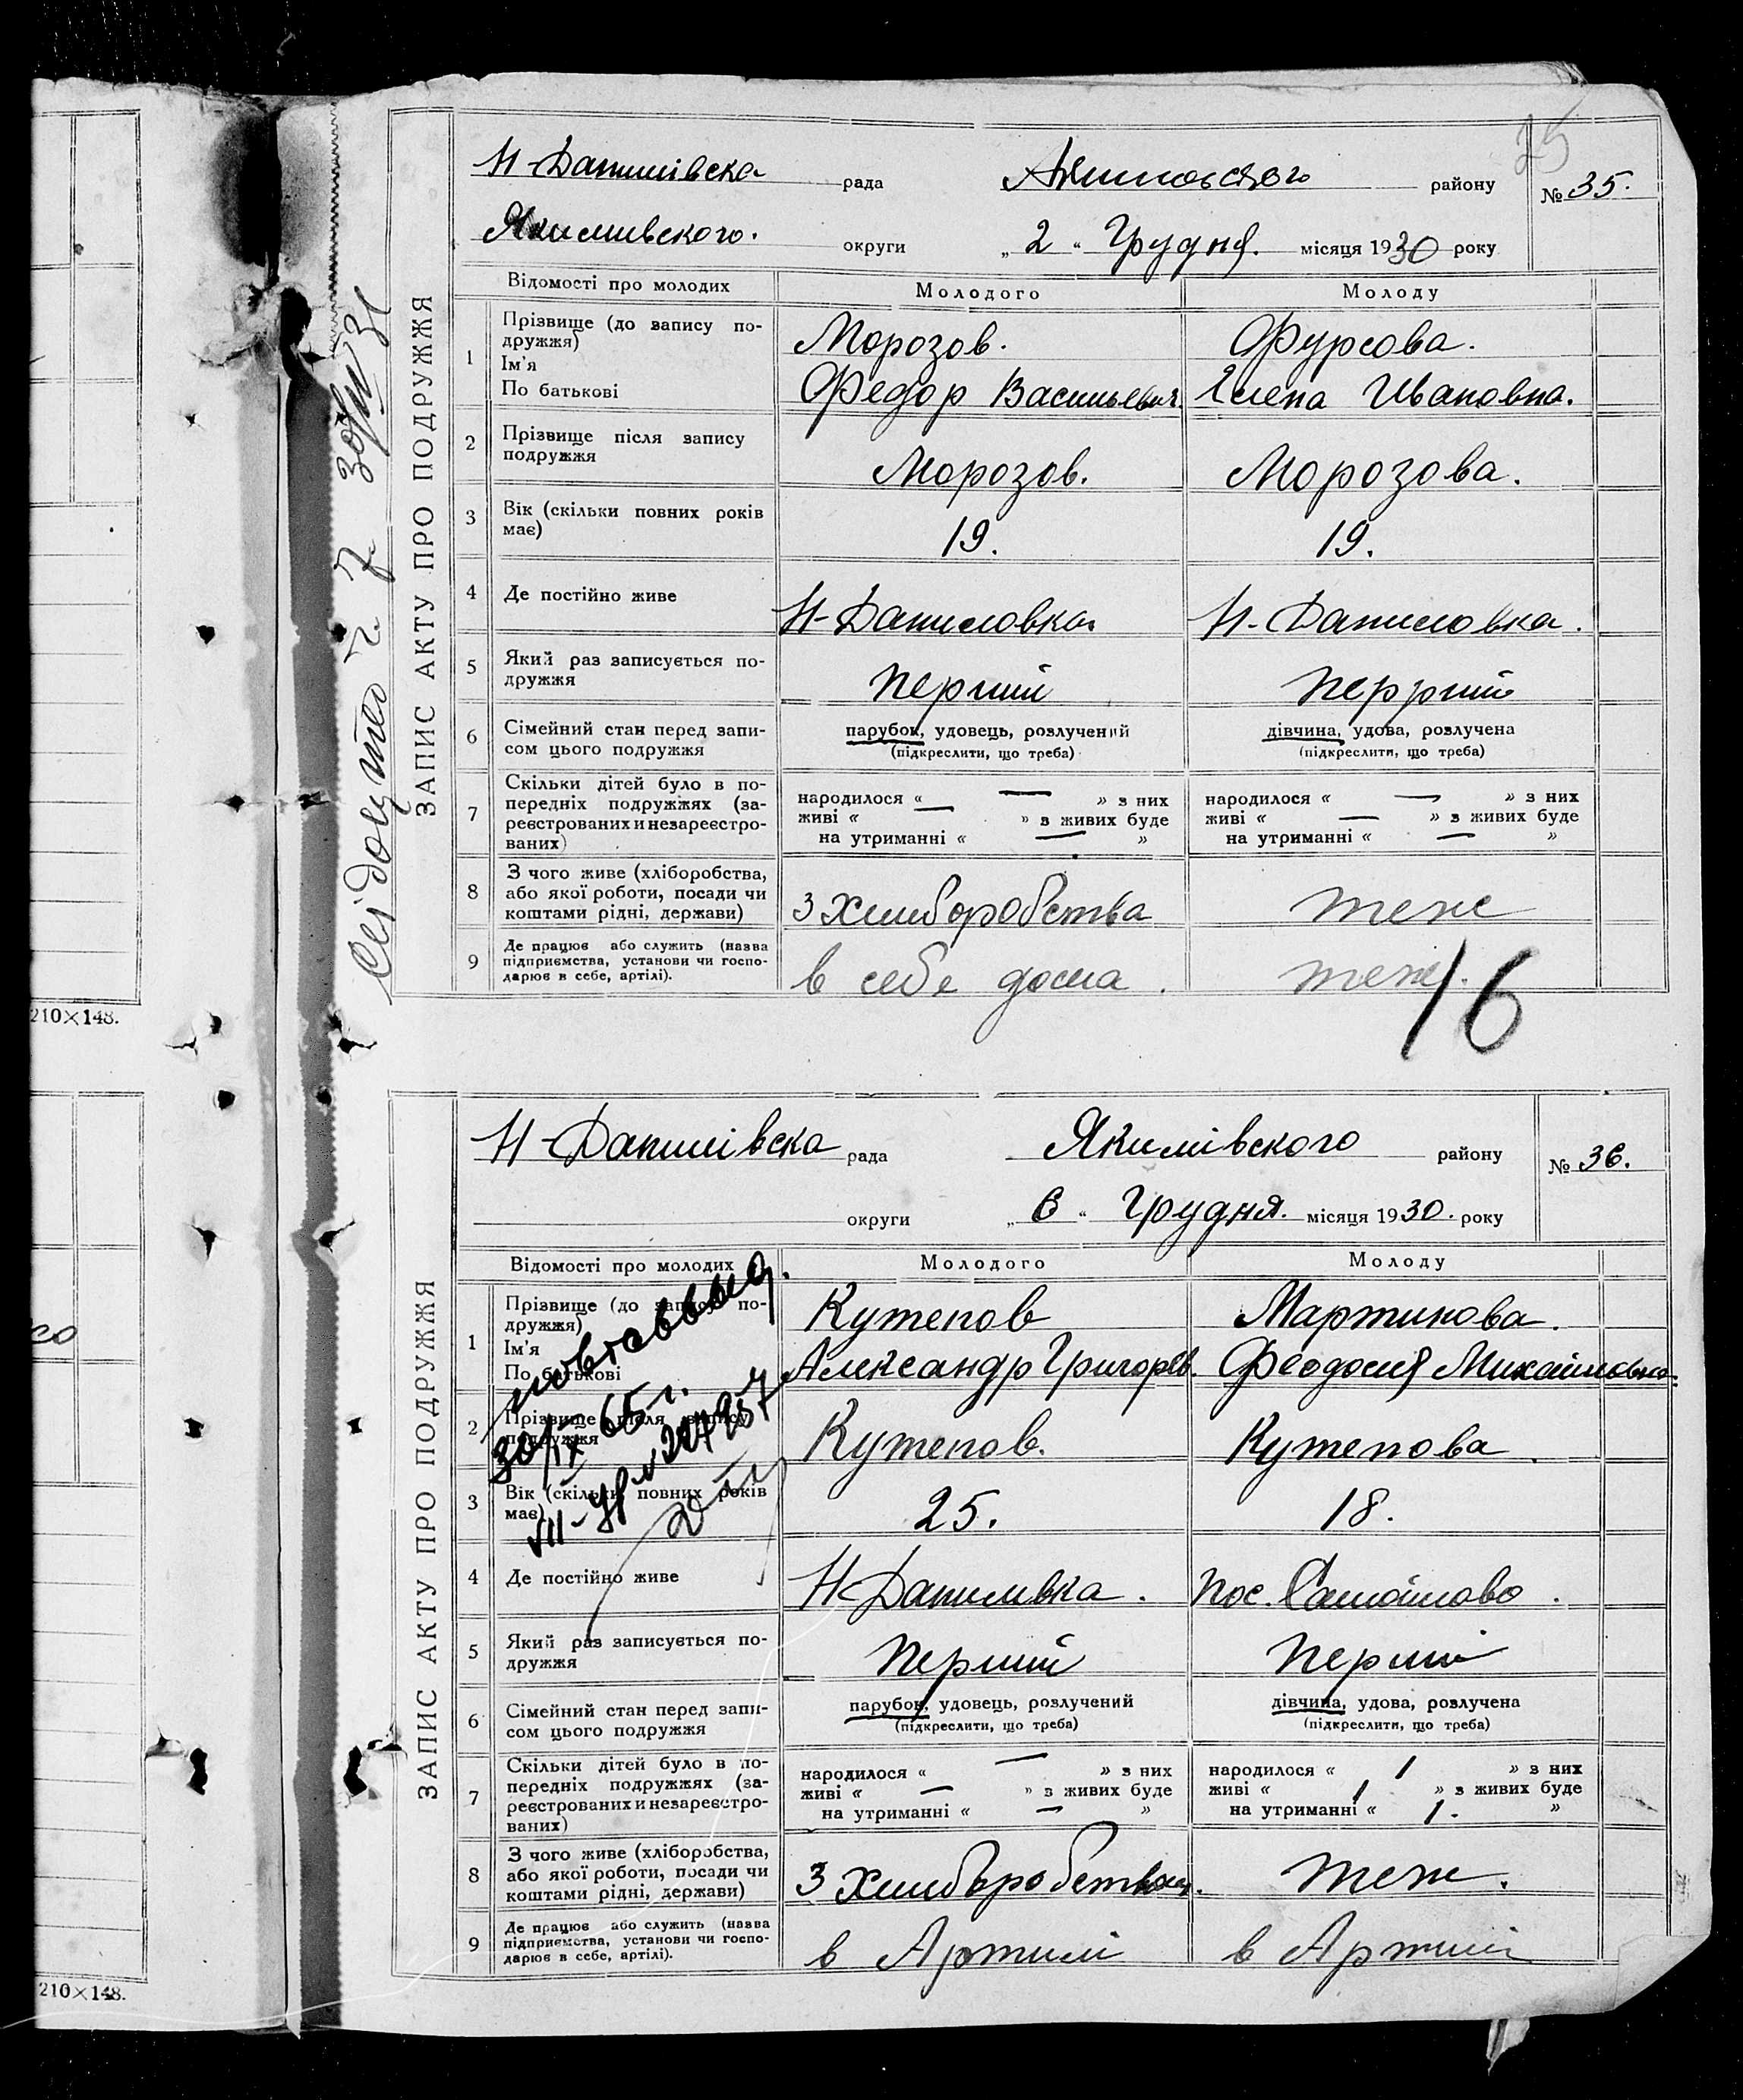 25
ЗАПИС АКТУ ПРО ПОДРУЖЖЯ
Н-Данилівска рада Якимовского району № 35.
Якимивского. округи „ 2 “ Грудня. місяця 1930 року
Відомості про молодих Молодого Молоду
1 Прізвище (до запису по-
дружжя) Морозов. Фурсова.
Ім'я
По батькові Федор Васильевич. Елена Ивановна.
2 Прізвище після запису
подружжя Морозов. Морозова.
3 Вік (скільки повних років
має) 19. 19.
4 Де постійно живе Н-Даниловка Н-Даниловка.
5 Який раз записується по-
дружжя перший перший
6 Сімейний стан перед запи-
сом цього подружжя
парубок, удовець, розлучений дівчина, удова, розлучена
(підкреслити, що треба) (підкреслити, що треба)
7 Скільки дітей було в по-
передніх подружжях (за-
реєстрованих и незареєстро-
ваних)
народилося « — » з них народилося « — » з них
живі « — » з живих буде живі « — » з живих буде
на утриманні « — » на утриманні « — »
8 З чого живе (хліборобства,
або якої роботи, посади чи
коштами рідні, держави) З Хлиборобства теж
9 Де працює або служить (назва
підприємства, установи чи госпо-
дарює в себе, артілі). в себе дома. теж.
16
210×148.
ЗАПИС АКТУ ПРО ПОДРУЖЖЯ
Н-Данилівска рада Якимівского району № 36.
округи „ 6 “ Грудня. місяця 1930. року
Відомості про молодих Молодого Молоду
1 Прізвище (до запису по-
дружжя) Кутепов Мартинова.
Ім'я
По батькові Александр Григорєв. Феодосия Михайловна.
2 Прізвище після запису
подружжя Кутепов. Кутепова.
30/IX 65 г.
3 Вік (скільки повних років
має) 25. 18.
4 Де постійно живе Н-Даниливка. пос.
5 Який раз записується по-
дружжя перший перший
6 Сімейний стан перед запи-
сом цього подружжя
парубок, удовець, розлучений дівчина, удова, розлучена
(підкреслити, що треба) (підкреслити, що треба)
7 Скільки дітей було в по-
передніх подружжях (за-
реєстрованих и незареєстро-
ваних)
народилося « — » з них народилося « 1 » з них
живі « — » з живих буде живі « 1 » з живих буде
на утриманні « — » на утриманні « 1. »
8 З чого живе (хліборобства,
або якої роботи, посади чи
коштами рідні, держави) З теж.
9 Де працює або служить (назва
підприємства, установи чи госпо-
дарює в себе, артілі). в Артилі в Артилі
210×148.